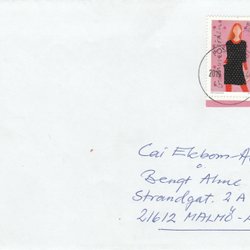 Cai Ekbom-A
o.
Bengt Alme
Strandgat. 2 A
21612 MALMÖ-